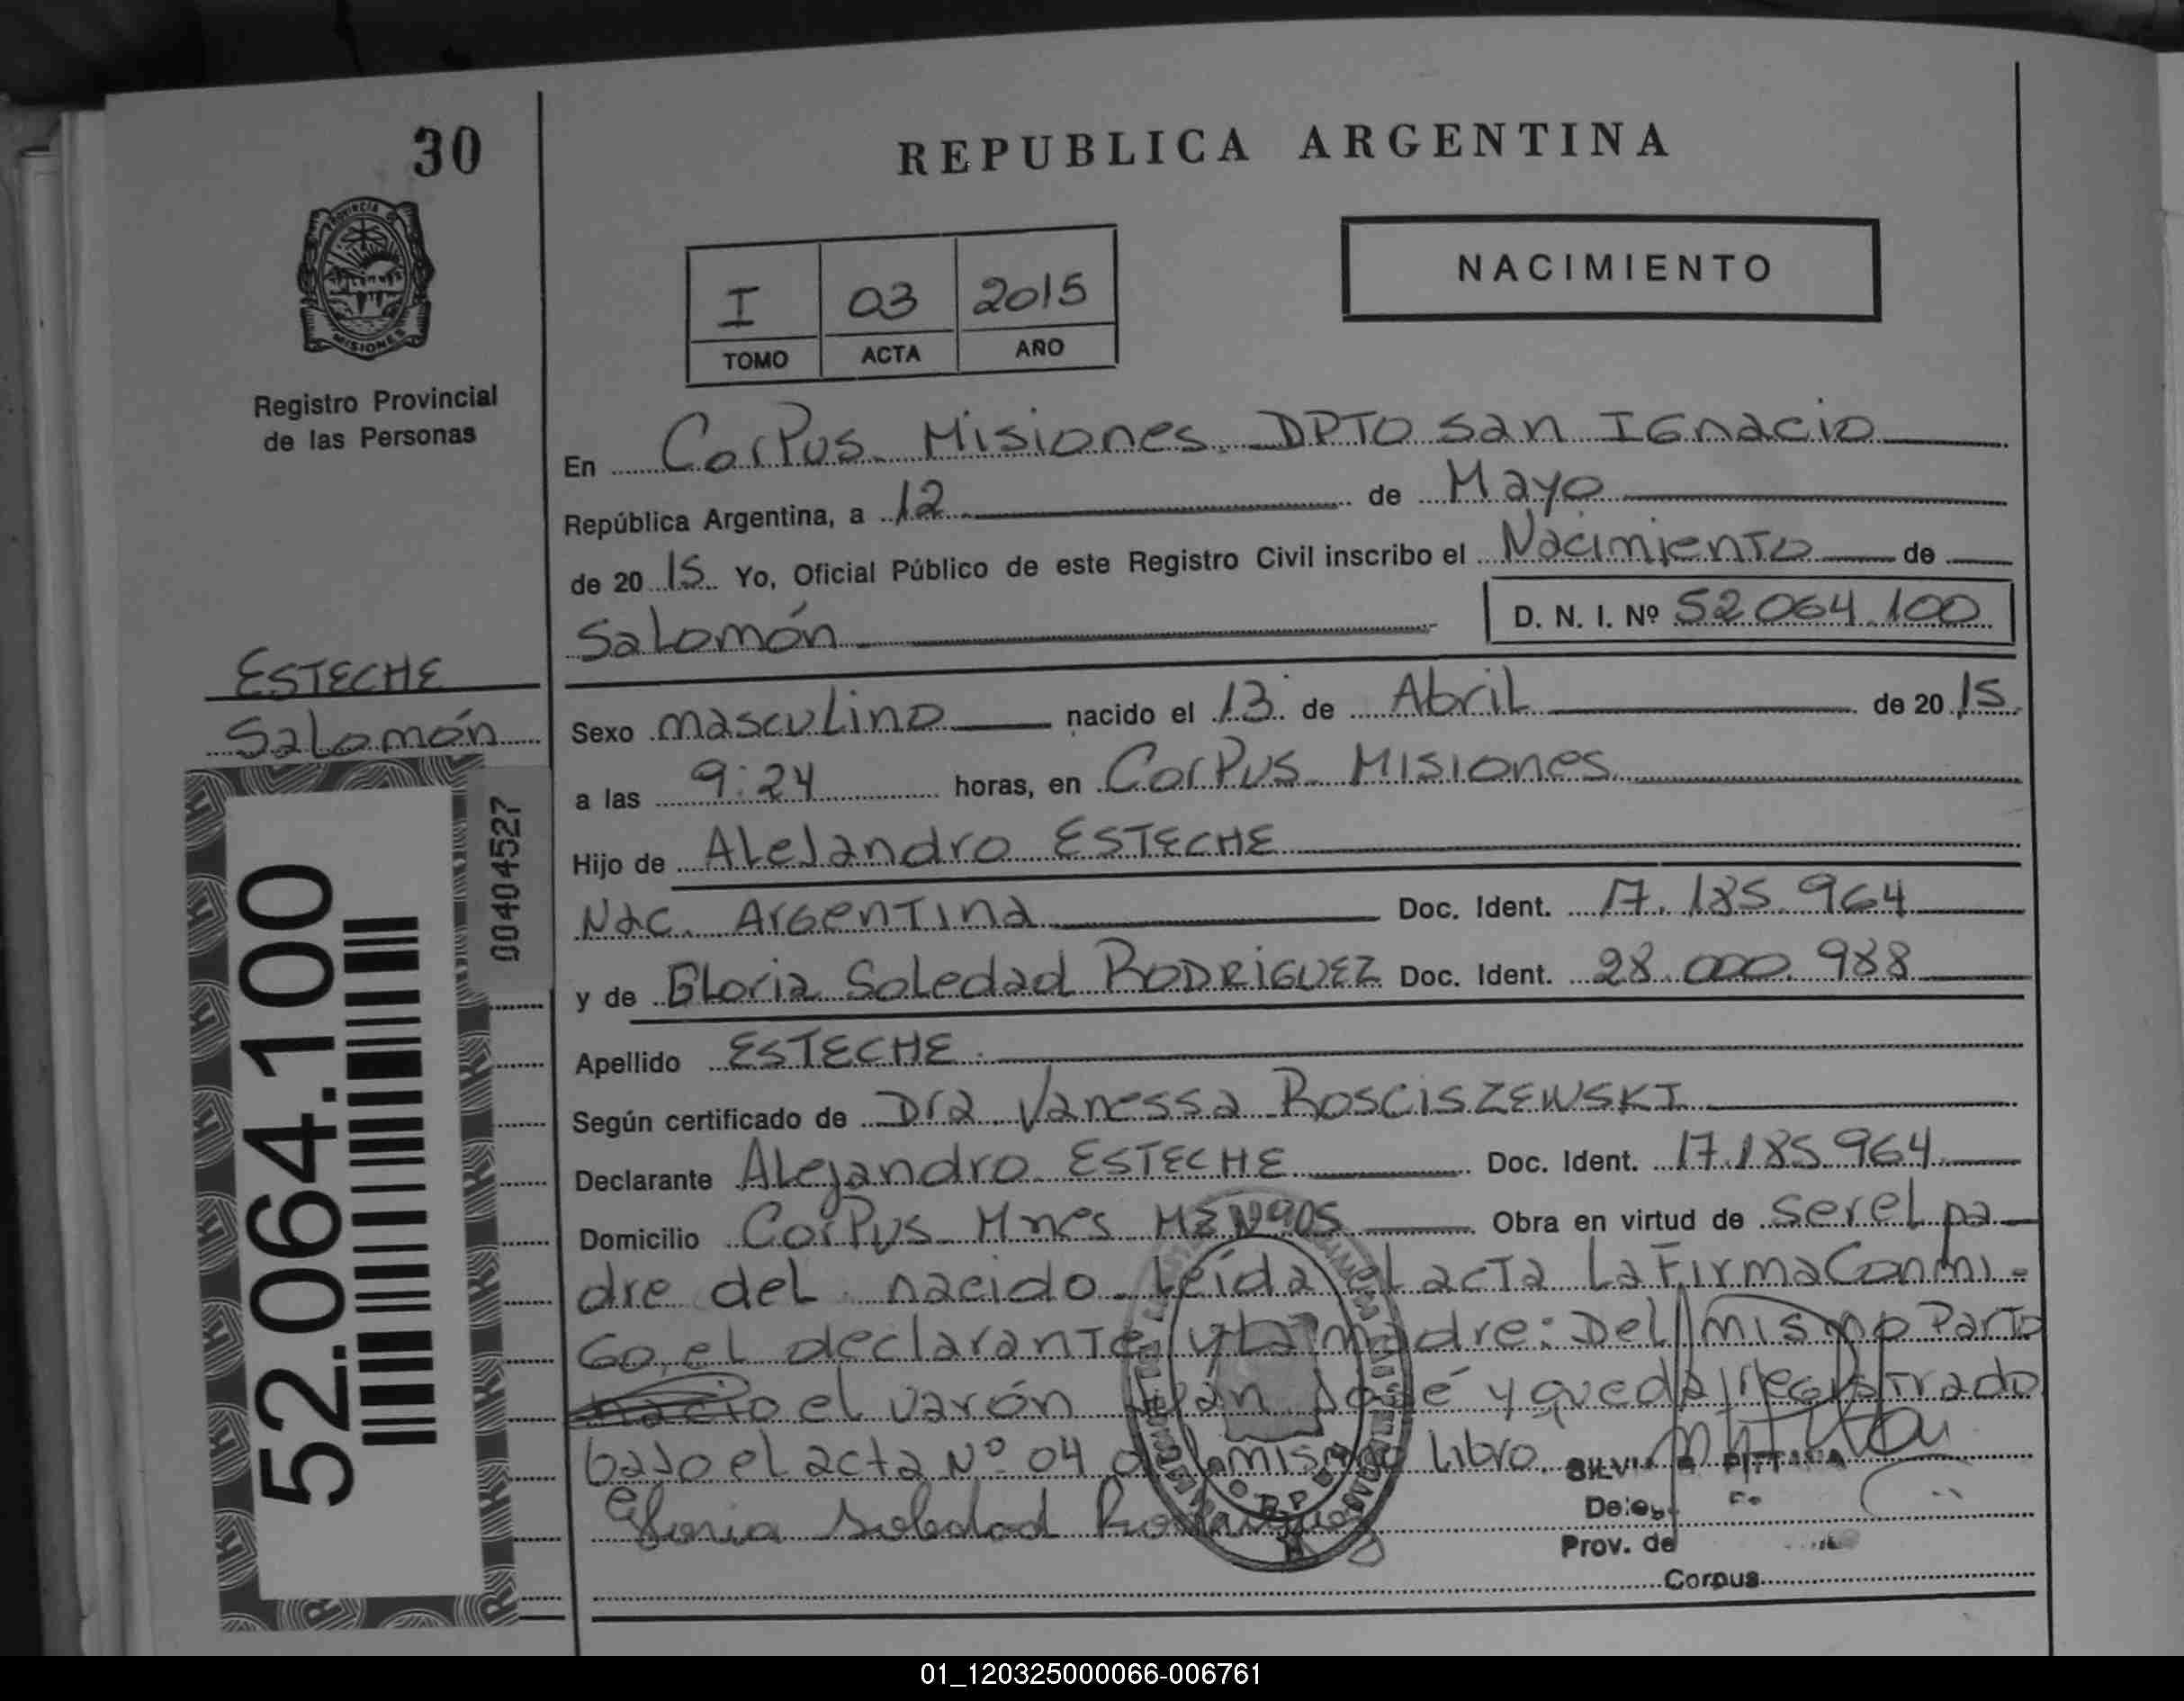 30
REPUBLICA ARGENTINA
PROVINCIA DE
MISIONES
Registro Provincial
de las Personas
NACIMIENTO
I 03 2015
TOMO ACTA AÑO
En Corpus Misiones DPTO San Ignacio
República Argentina, a 12 de Mayo
de 20 15 Yo, Oficial Público de este Registro Civil inscribo el Nacimiento de
Salomón D. N. I. Nº 52 064.100
ESTECHE
Salomón
Sexo masculino nacido el 13 de Abril de 20 15
a las 9:24 horas, en Corpus Misiones
Hijo de Alejandro ESTECHE
Nac. Argentina Doc. Ident. 17.185.964
y de Gloria Soledad RODRIGUEZ Doc. Ident. 28.000.988
Apellido ESTECHE
Según certificado de Dra. Vanessa ROSCISZEWSKI
Declarante Alejandro ESTECHE Doc. Ident. 17.185.964
Domicilio Corpus Mnes Obra en virtud de ser el pa
dre del nacido. Leída el acta La Firma Conmi-
Go, el declarante y La madre: Del mismo Parto
nacio el varón Juan José y queda registrado
bajo el acta Nº 04 mismo Libro.
Gloria Soledad Rodriguez
Prov. de
Corpus
52.064.100
00404527
01_120325000066-006761